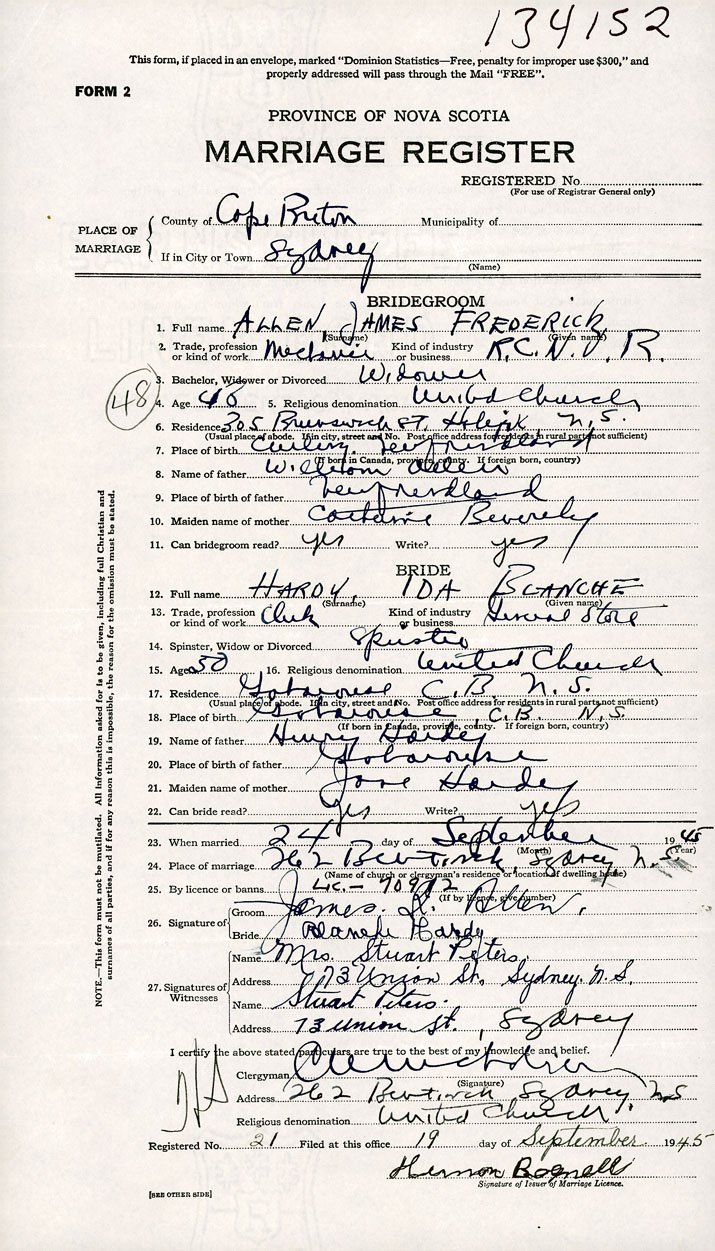 134152
This form, if placed in an envelope, marked "Dominion Statistics—Free, penalty for improper use $300," and
properly addressed will pass through the Mail "FREE".
FORM 2
PROVINCE OF NOVA SCOTIA
MARRIAGE REGISTER
REGISTERED No.
(For use of Registrar General only)
PLACE OF MARRIAGE
County of Cape Breton Municipality of
If in City or Town Sydney
(Name)
BRIDEGROOM
1. Full name ALLEN, JAMES FREDERICK
(Surname) (Given name)
2. Trade, profession or kind of work Mechanic Kind of industry or business R.C.N.V.R.
3. Bachelor, Widower or Divorced Widower
48
4. Age 48 5. Religious denomination United Church
6. Residence 305 Brunswick St. Halifax N.S.
(Usual place of abode. If in city, street and No. Post office address for residents in rural parts not sufficient)
7. Place of birth Curling, Newfoundland
(If born in Canada, province, county. If foreign born, country)
8. Name of father William Allen
9. Place of birth of father Newfoundland
10. Maiden name of mother Catherine Beverely
11. Can bridegroom read? yes Write? yes
BRIDE
12. Full name HARDY, IDA BLANCHE
(Surname) (Given name)
13. Trade, profession or kind of work Clerk Kind of industry or business General Store
14. Spinster, Widow or Divorced Spinster
15. Age 50 16. Religious denomination United Church
17. Residence Gabarouse C.B. N.S.
(Usual place of abode. If in city, street and No. Post office address for residents in rural parts not sufficient)
18. Place of birth Gabarouse, C.B. N.S.
(If born in Canada, province, county. If foreign born, country)
19. Name of father Henry Hardy
20. Place of birth of father Gabarouse
21. Maiden name of mother Jane Hardy
22. Can bride read? Yes Write? yes
23. When married 24 day of September 1945
(Month) (Year)
24. Place of marriage 262 Bentinck, Sydney N.S.
(Name of church or clergyman's residence or location of dwelling house)
25. By licence or banns Lic.—
(If by licence, give number)
26. Signature of
Groom James Allen.
Bride Blanche Hardy
27. Signatures of Witnesses
Name Mrs. Stuart Peters
Address 73 Union St, Sydney. N.S.
Name Stuart Peters.
Address 73 Union St., Sydney
I certify the above stated particulars are true to the best of my knowledge and belief.
Clergyman
(Signature)
Address 262 Bentinck Sydney N.S
Religious denomination United Church
Registered No. 21 Filed at this office 19 day of September 1945
Signature of Issuer of Marriage Licence.
[SEE OTHER SIDE]
NOTE.—This form must not be mutilated. All information asked for is to be given, including full Christian and
surnames of all parties, and if for any reason this is impossible, the reason for the omission must be stated.